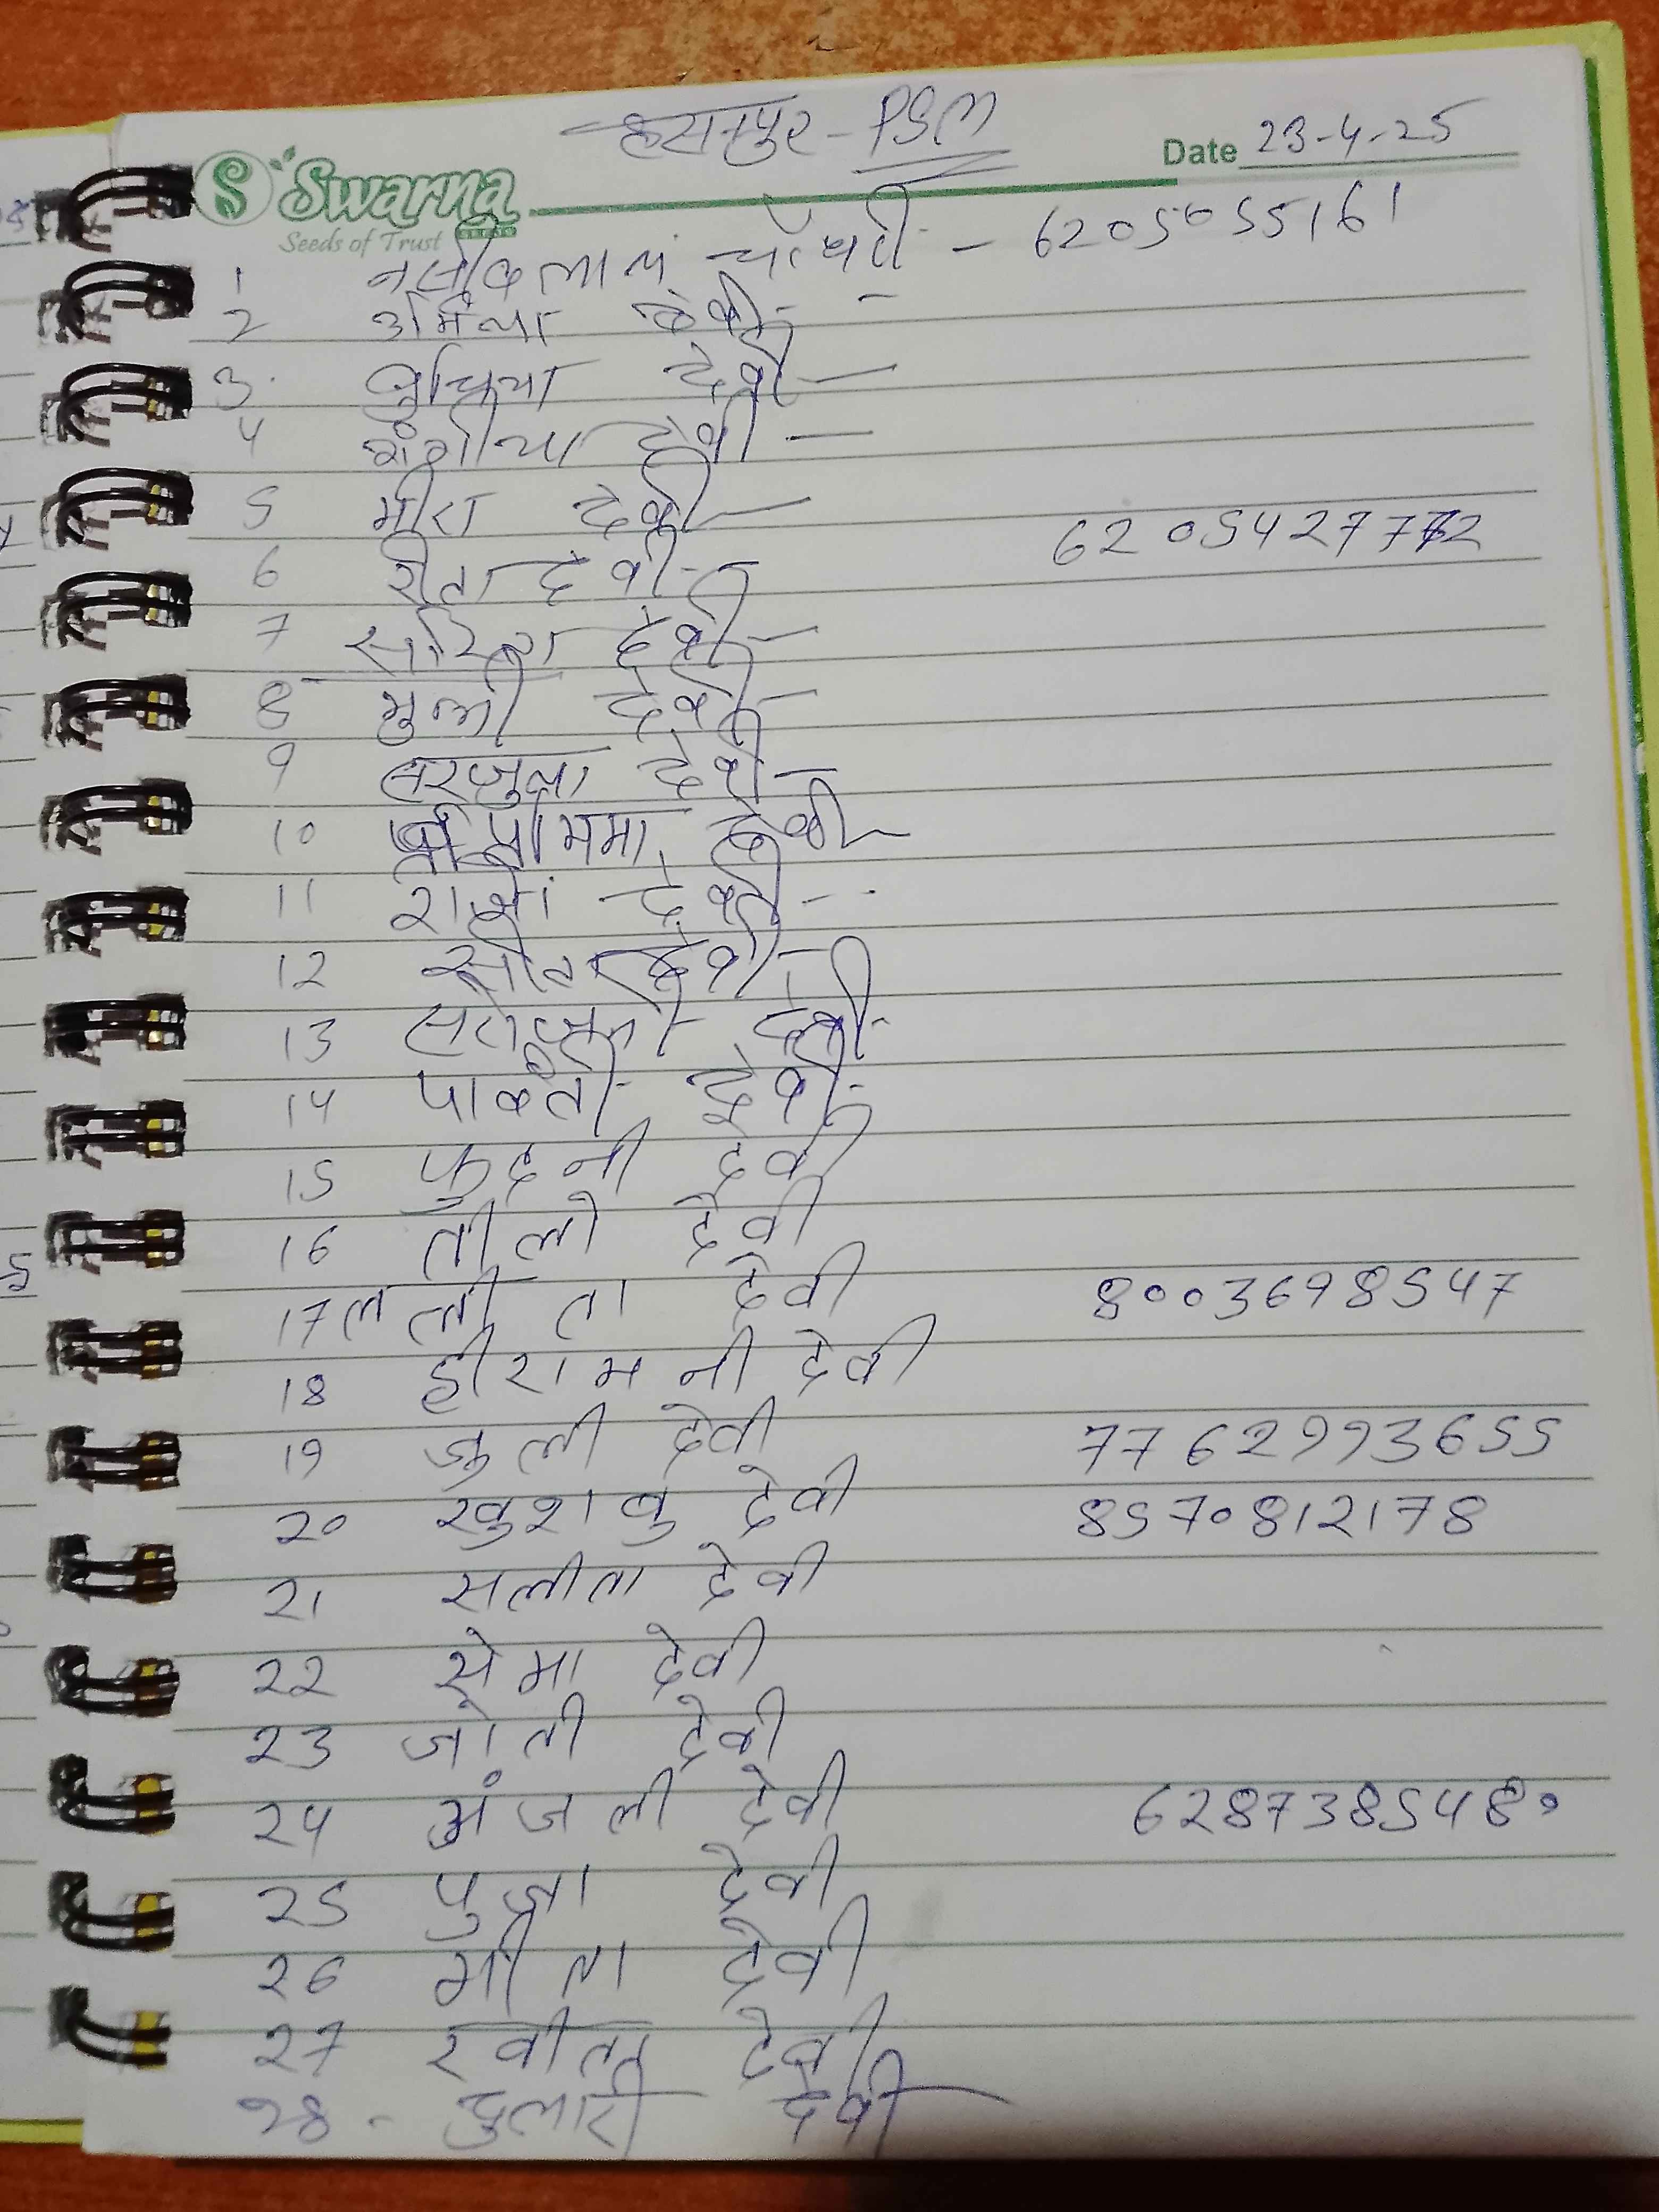 हसनपुर - PSM
Date 23-4-25
Swarna
Seeds of Trust
1 चौधरी - 6205055161
2 उर्मिला देवी -
3. बुधिया देवी -
4 देवी -
5 मीरा देवी - 6205427772
6 रीता देवी -
7 सरिता देवी -
8 मुन्नी देवी -
9 देवी -
10 देवी -
11 देवी -
12 सीता देवी -
13 देवी -
14 पार्वती देवी -
15 फुदनी देवी
16 तीलो देवी
17 लली ता देवी 8003698547
18 हीरामनी देवी
19 जुली देवी 77629993655
20 खुशबु देवी 8570812178
21 सलीता देवी
22 सेमा देवी
23 जोती देवी
24 अंजली देवी 6287385480
25 पुजा देवी
26 गीता देवी
27 रवीता देवी
28 - दुलारी देवी